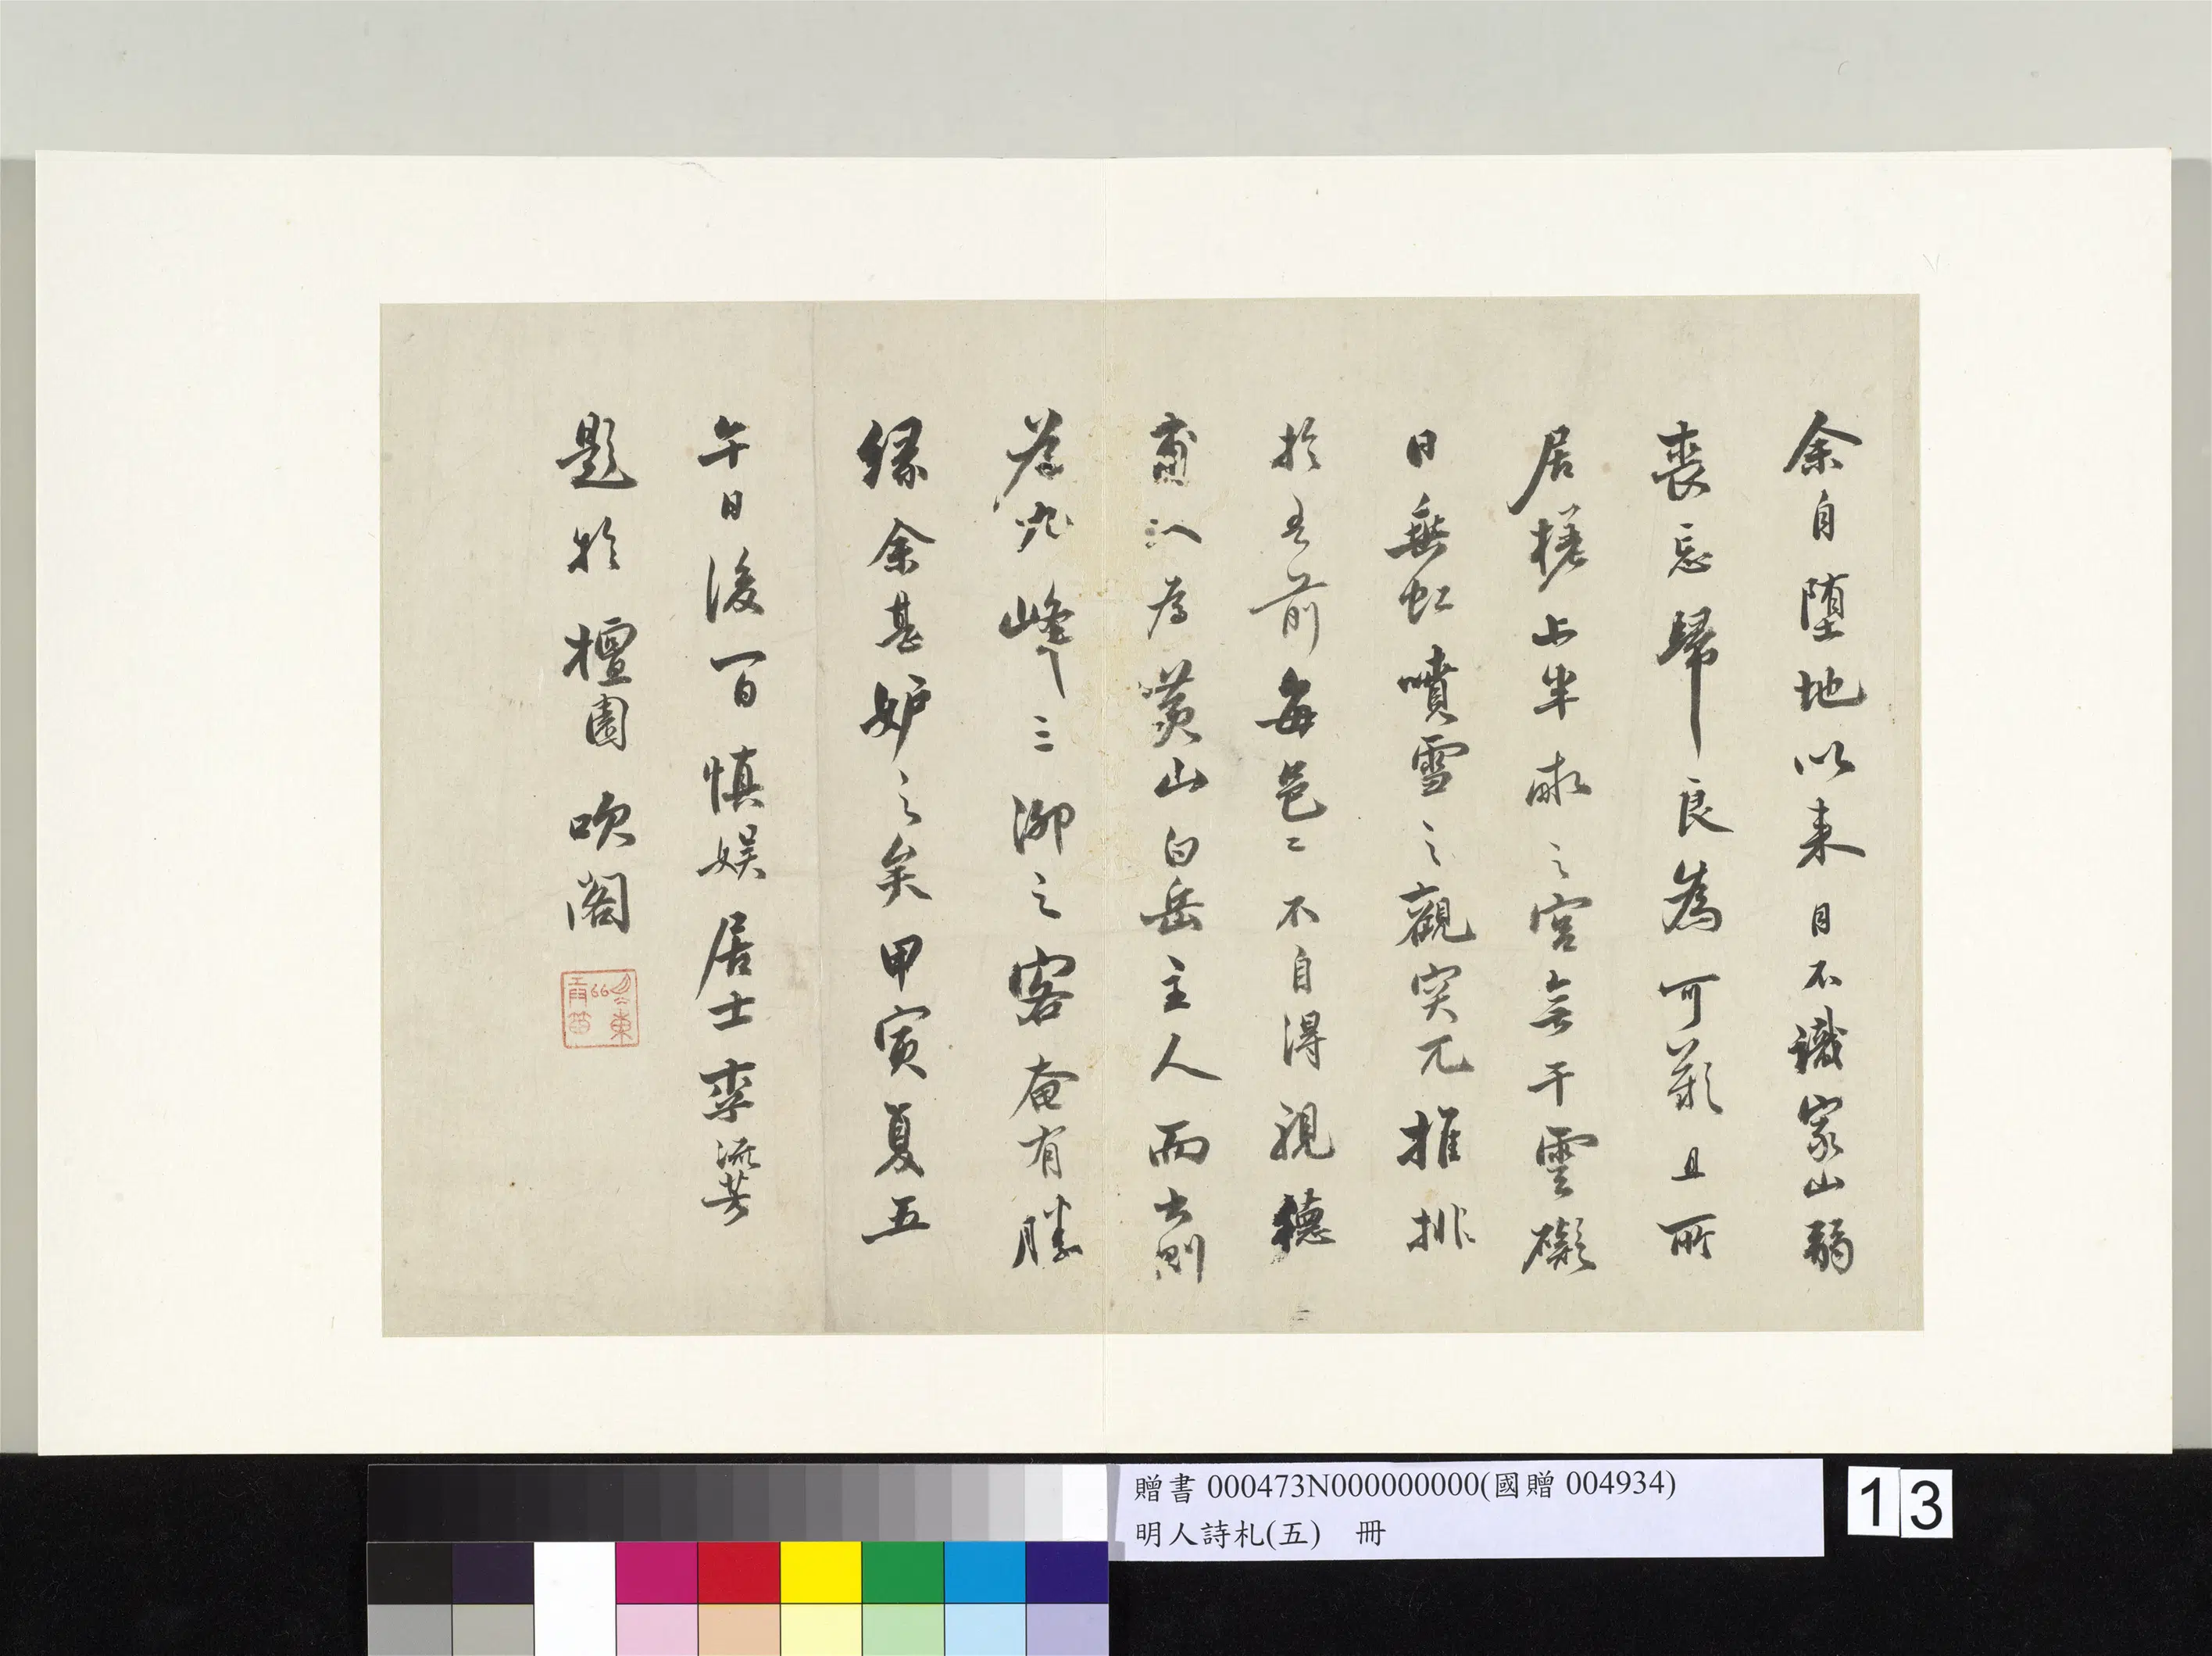 余自墮地以来目不識家山弱
喪忘歸良為可歎且所
居槎上半畝之宮無干雲礙
日垂虹噴雪之觀突兀推排
於吾前每邑邑不自得視穗
甫入為黃山白岳主人而出則
為九峰三泖之客奄有勝
緣余甚妒之矣甲寅夏五
午日後一日慎娛居士李流芳
題於檀園吹閣
贈書 000473N000000000(國贈 004934)
明人詩札(五) 冊
13